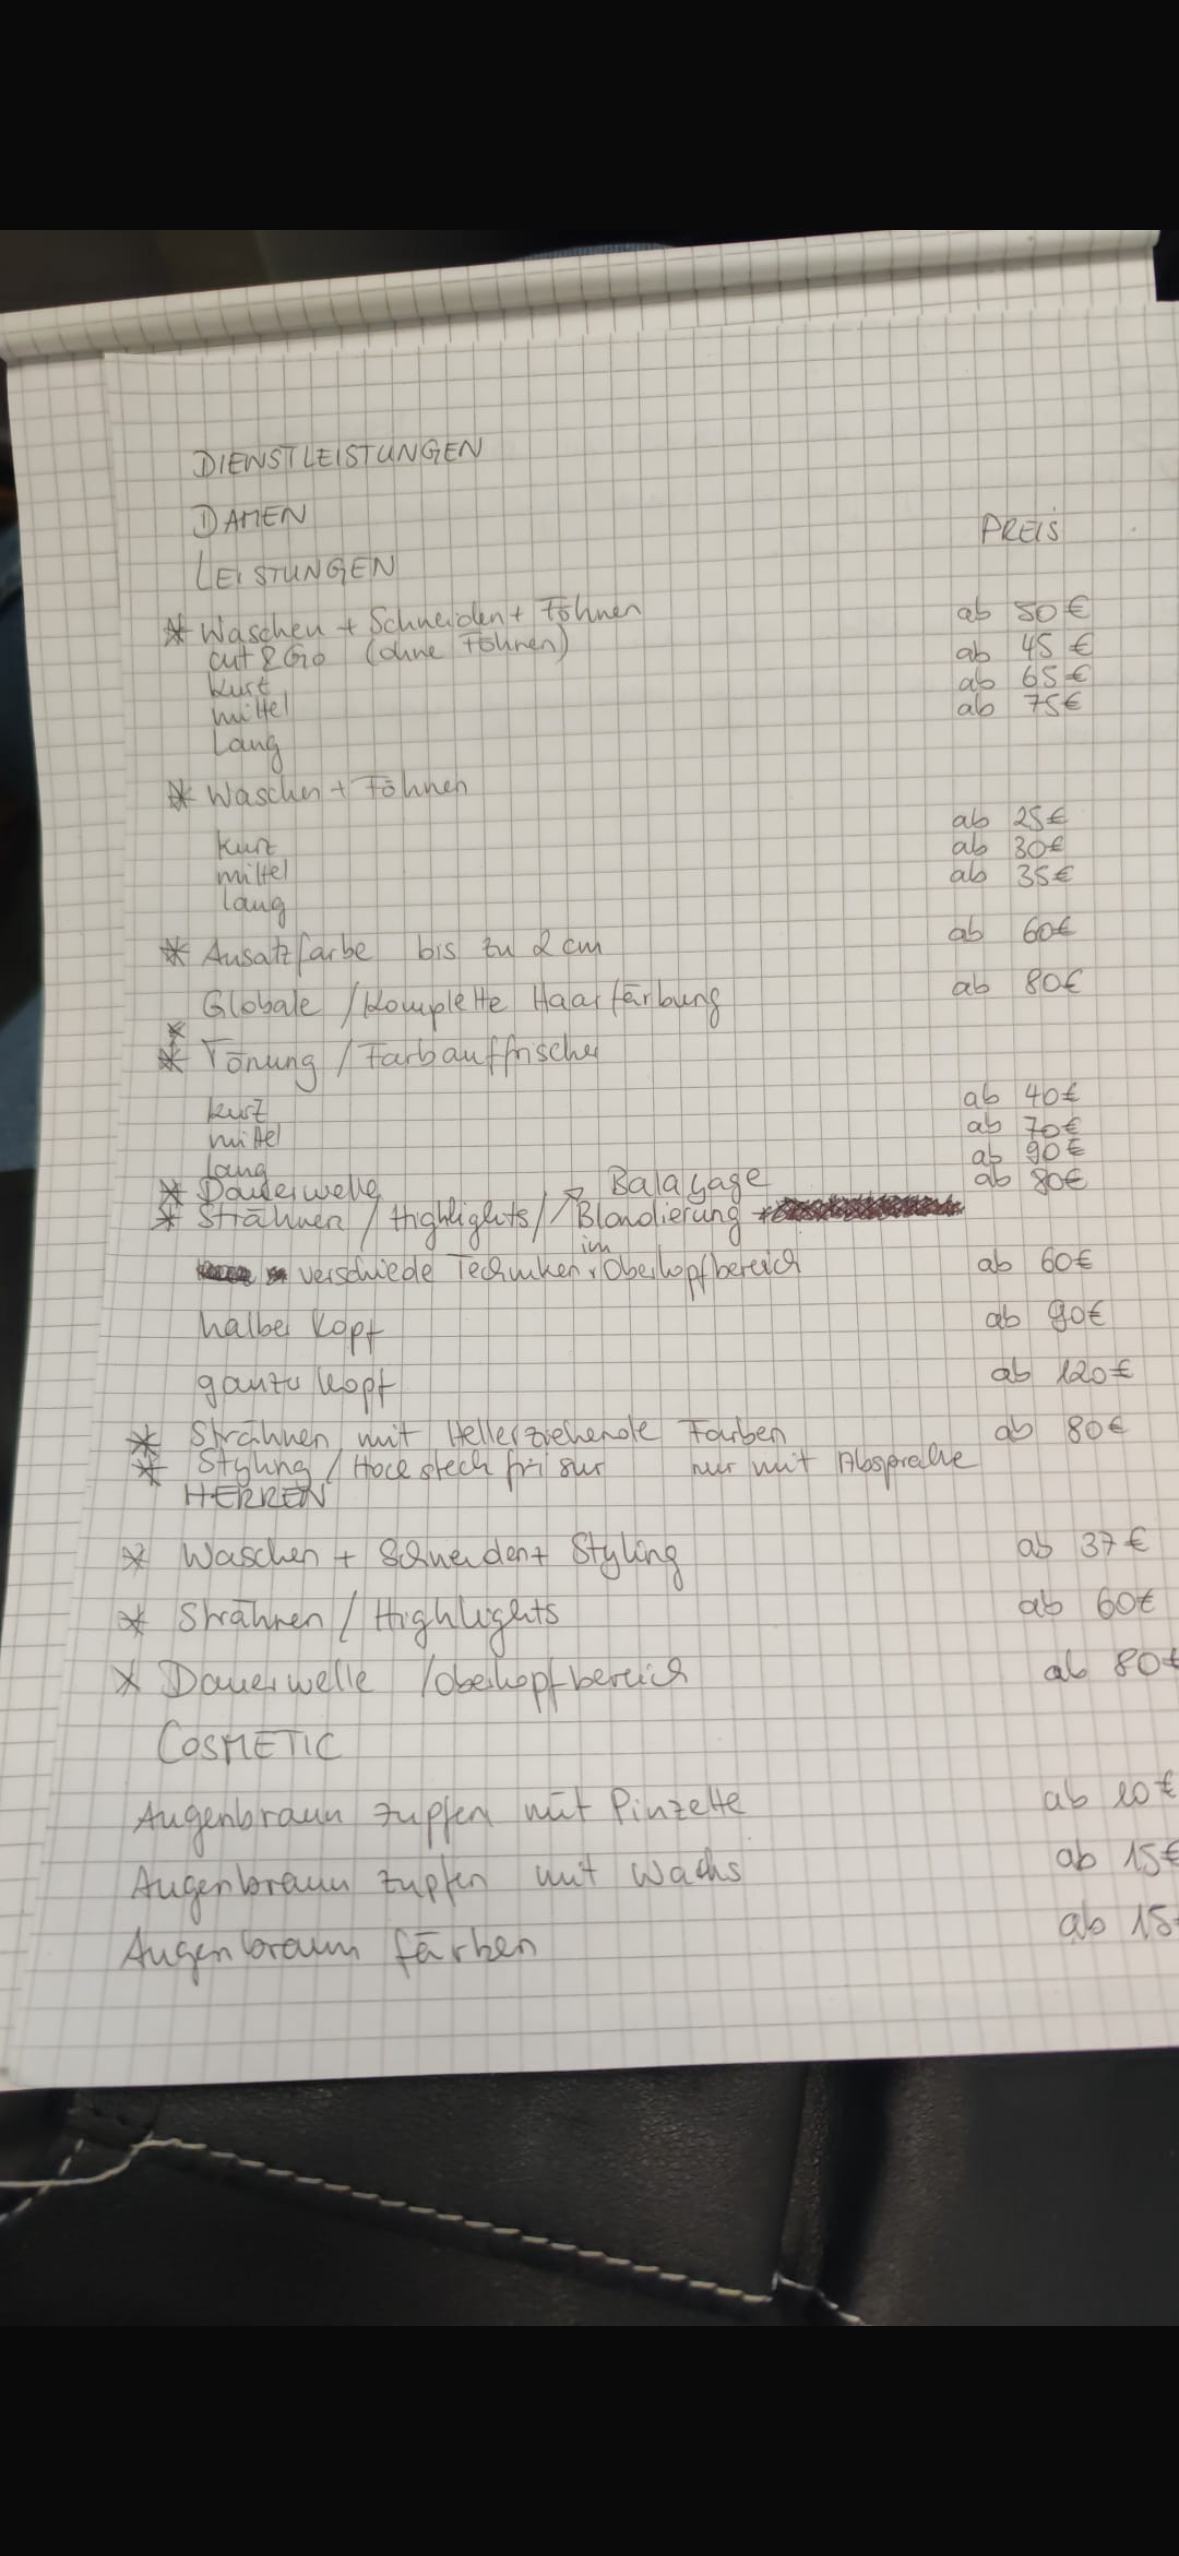 DIENSTLEISTUNGEN
DAMEN
PREIS
LEISTUNGEN
* Waschen + Schneiden + Föhnen ab 50 €
cut & Go (ohne Föhnen) ab 45 €
kurz ab 65 €
mittel ab 75 €
Lang
* Waschen + Föhnen
ab 25 €
kurz ab 30 €
mittel ab 35 €
lang
* Ausatzfarbe bis zu 2 cm ab 60 €
Globale / Komplette Haarfärbung ab 80 €
* Tönung / Farbauffrischer
kurz ab 40 €
mittel ab 70 €
lang ab 90 €
* Dauerwelle ab 80 €
Balayage
* Strähnen / Highlights / Blondierung +
im
verschiede Techniken Oberkopfbereich ab 60 €
halber Kopf ab 90 €
ganzer Kopf ab 120 €
* Strähnen mit Hellerziehende Farben ab 80 €
* Styling / Hochsteckfrisur nur mit Absprache
HERREN
* Waschen + Schneiden + Styling ab 37 €
* Strähnen / Highlights ab 60 €
* Dauerwelle / Oberkopfbereich ab 80 €
COSMETIC
Augenbraun zupfen mit Pinzette ab 10 €
Augenbraun zupfen mit Wachs ab 15 €
Augenbraun färben ab 15